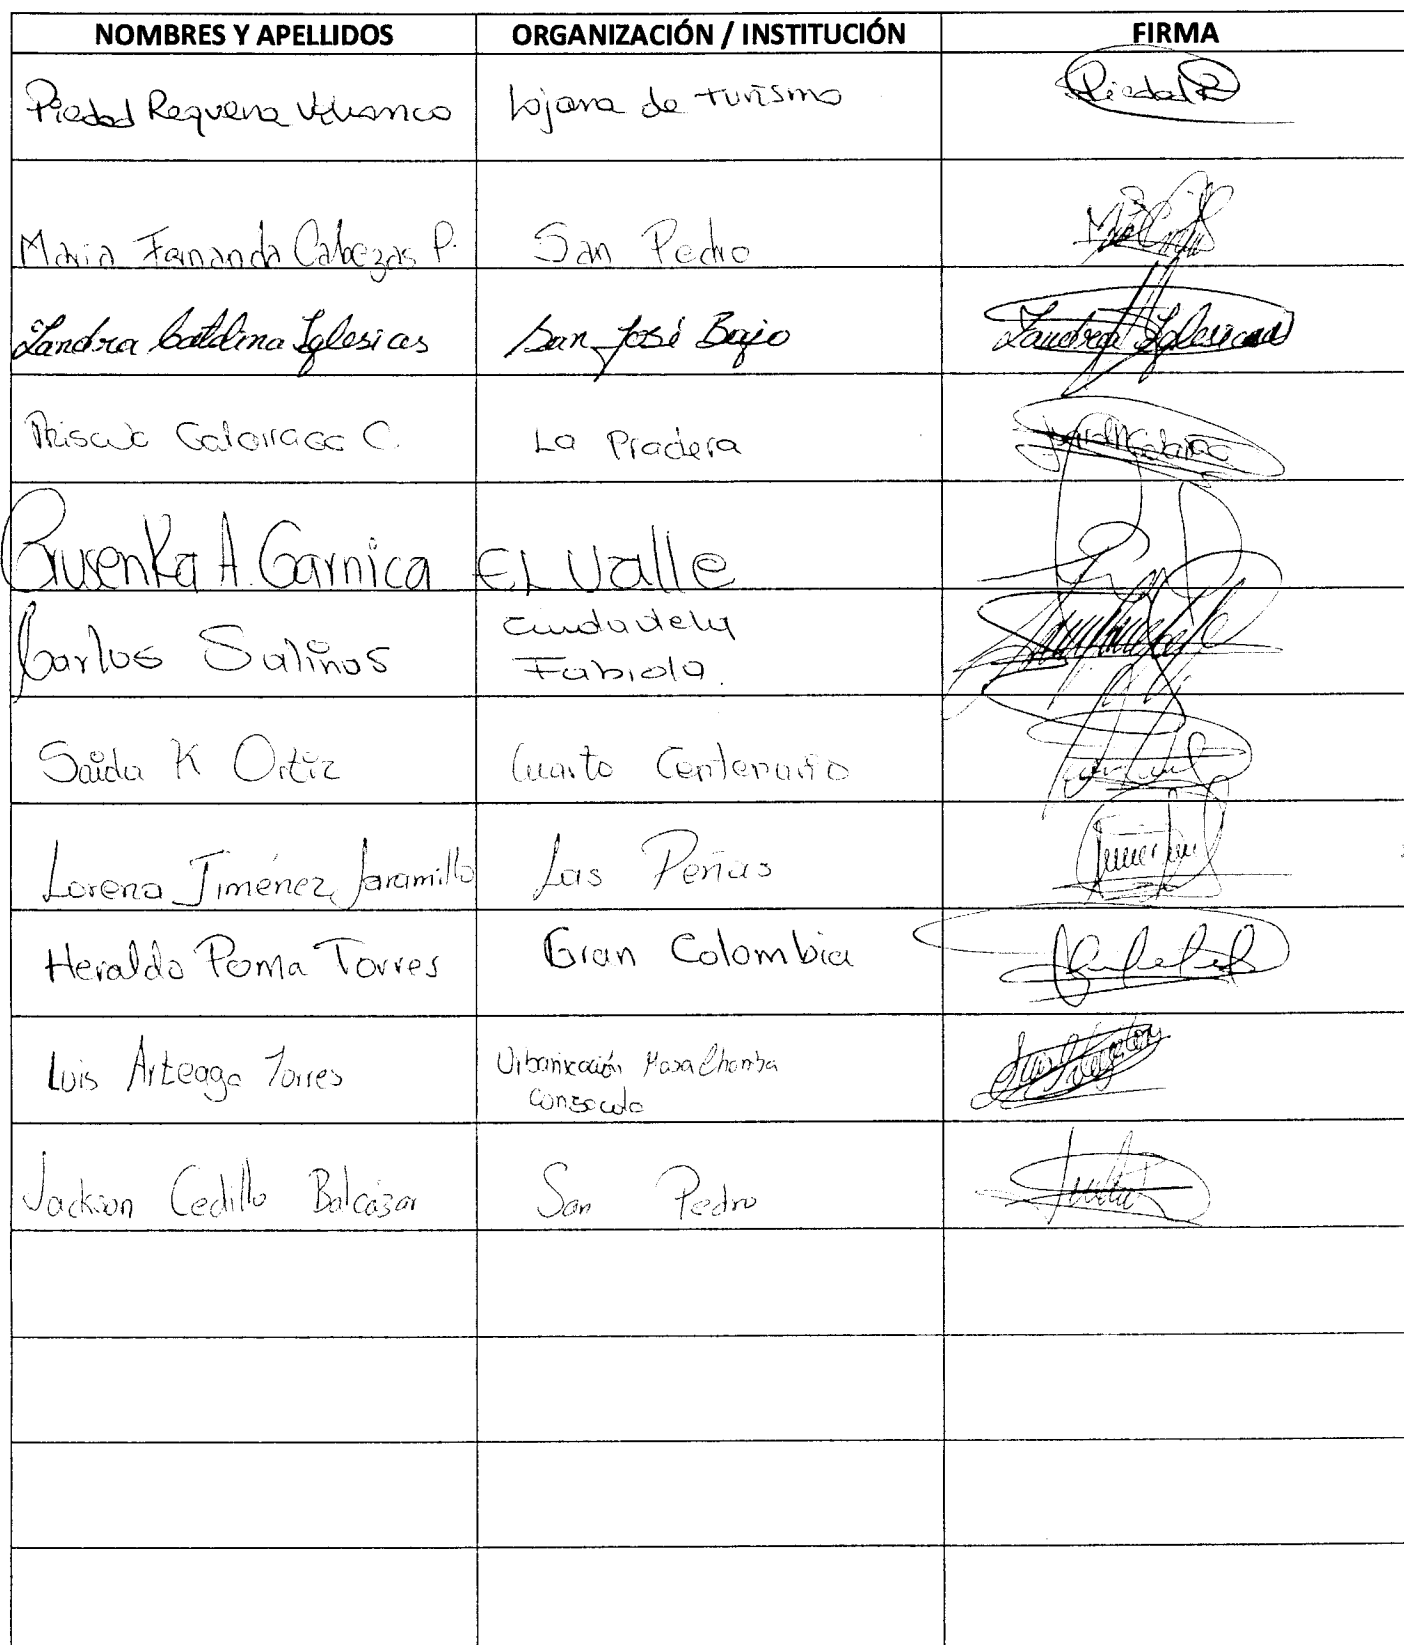 NOMBRES Y APELLIDOS ORGANIZACIÓN / INSTITUCIÓN FIRMA
Piedad Requena Vivanco Lojana de turismo Piedad R
Maria Fernanda Cabezas P. San Pedro
Sandra Catalina Iglesias San José Bajo Sandra Iglesias
Galarraga C. La Pradera
Grusenka A. Garnica EL Valle
Carlos Salinas Ciudadela
Fabiola.
Saida K Ortiz Cuarto Centenario
Lorena Jiménez Jaramillo Las Peñas
Heraldo Poma Torres Gran Colombia
Luis Arteaga Torres Urbanización
Jackson Cedillo Balcázar San Pedro